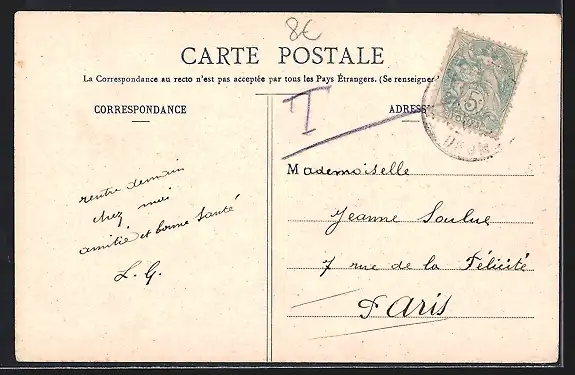 8€
CARTE POSTALE
La Correspondance au recto n'est pas acceptée par tous les Pays Étrangers. (Se renseigner
CORRESPONDANCE
ADRESS
T
5c
Mademoiselle
rentre demain
chez moi
amitié et bonne santé
L. G.
Jeanne
7 rue de la Félicité
Paris